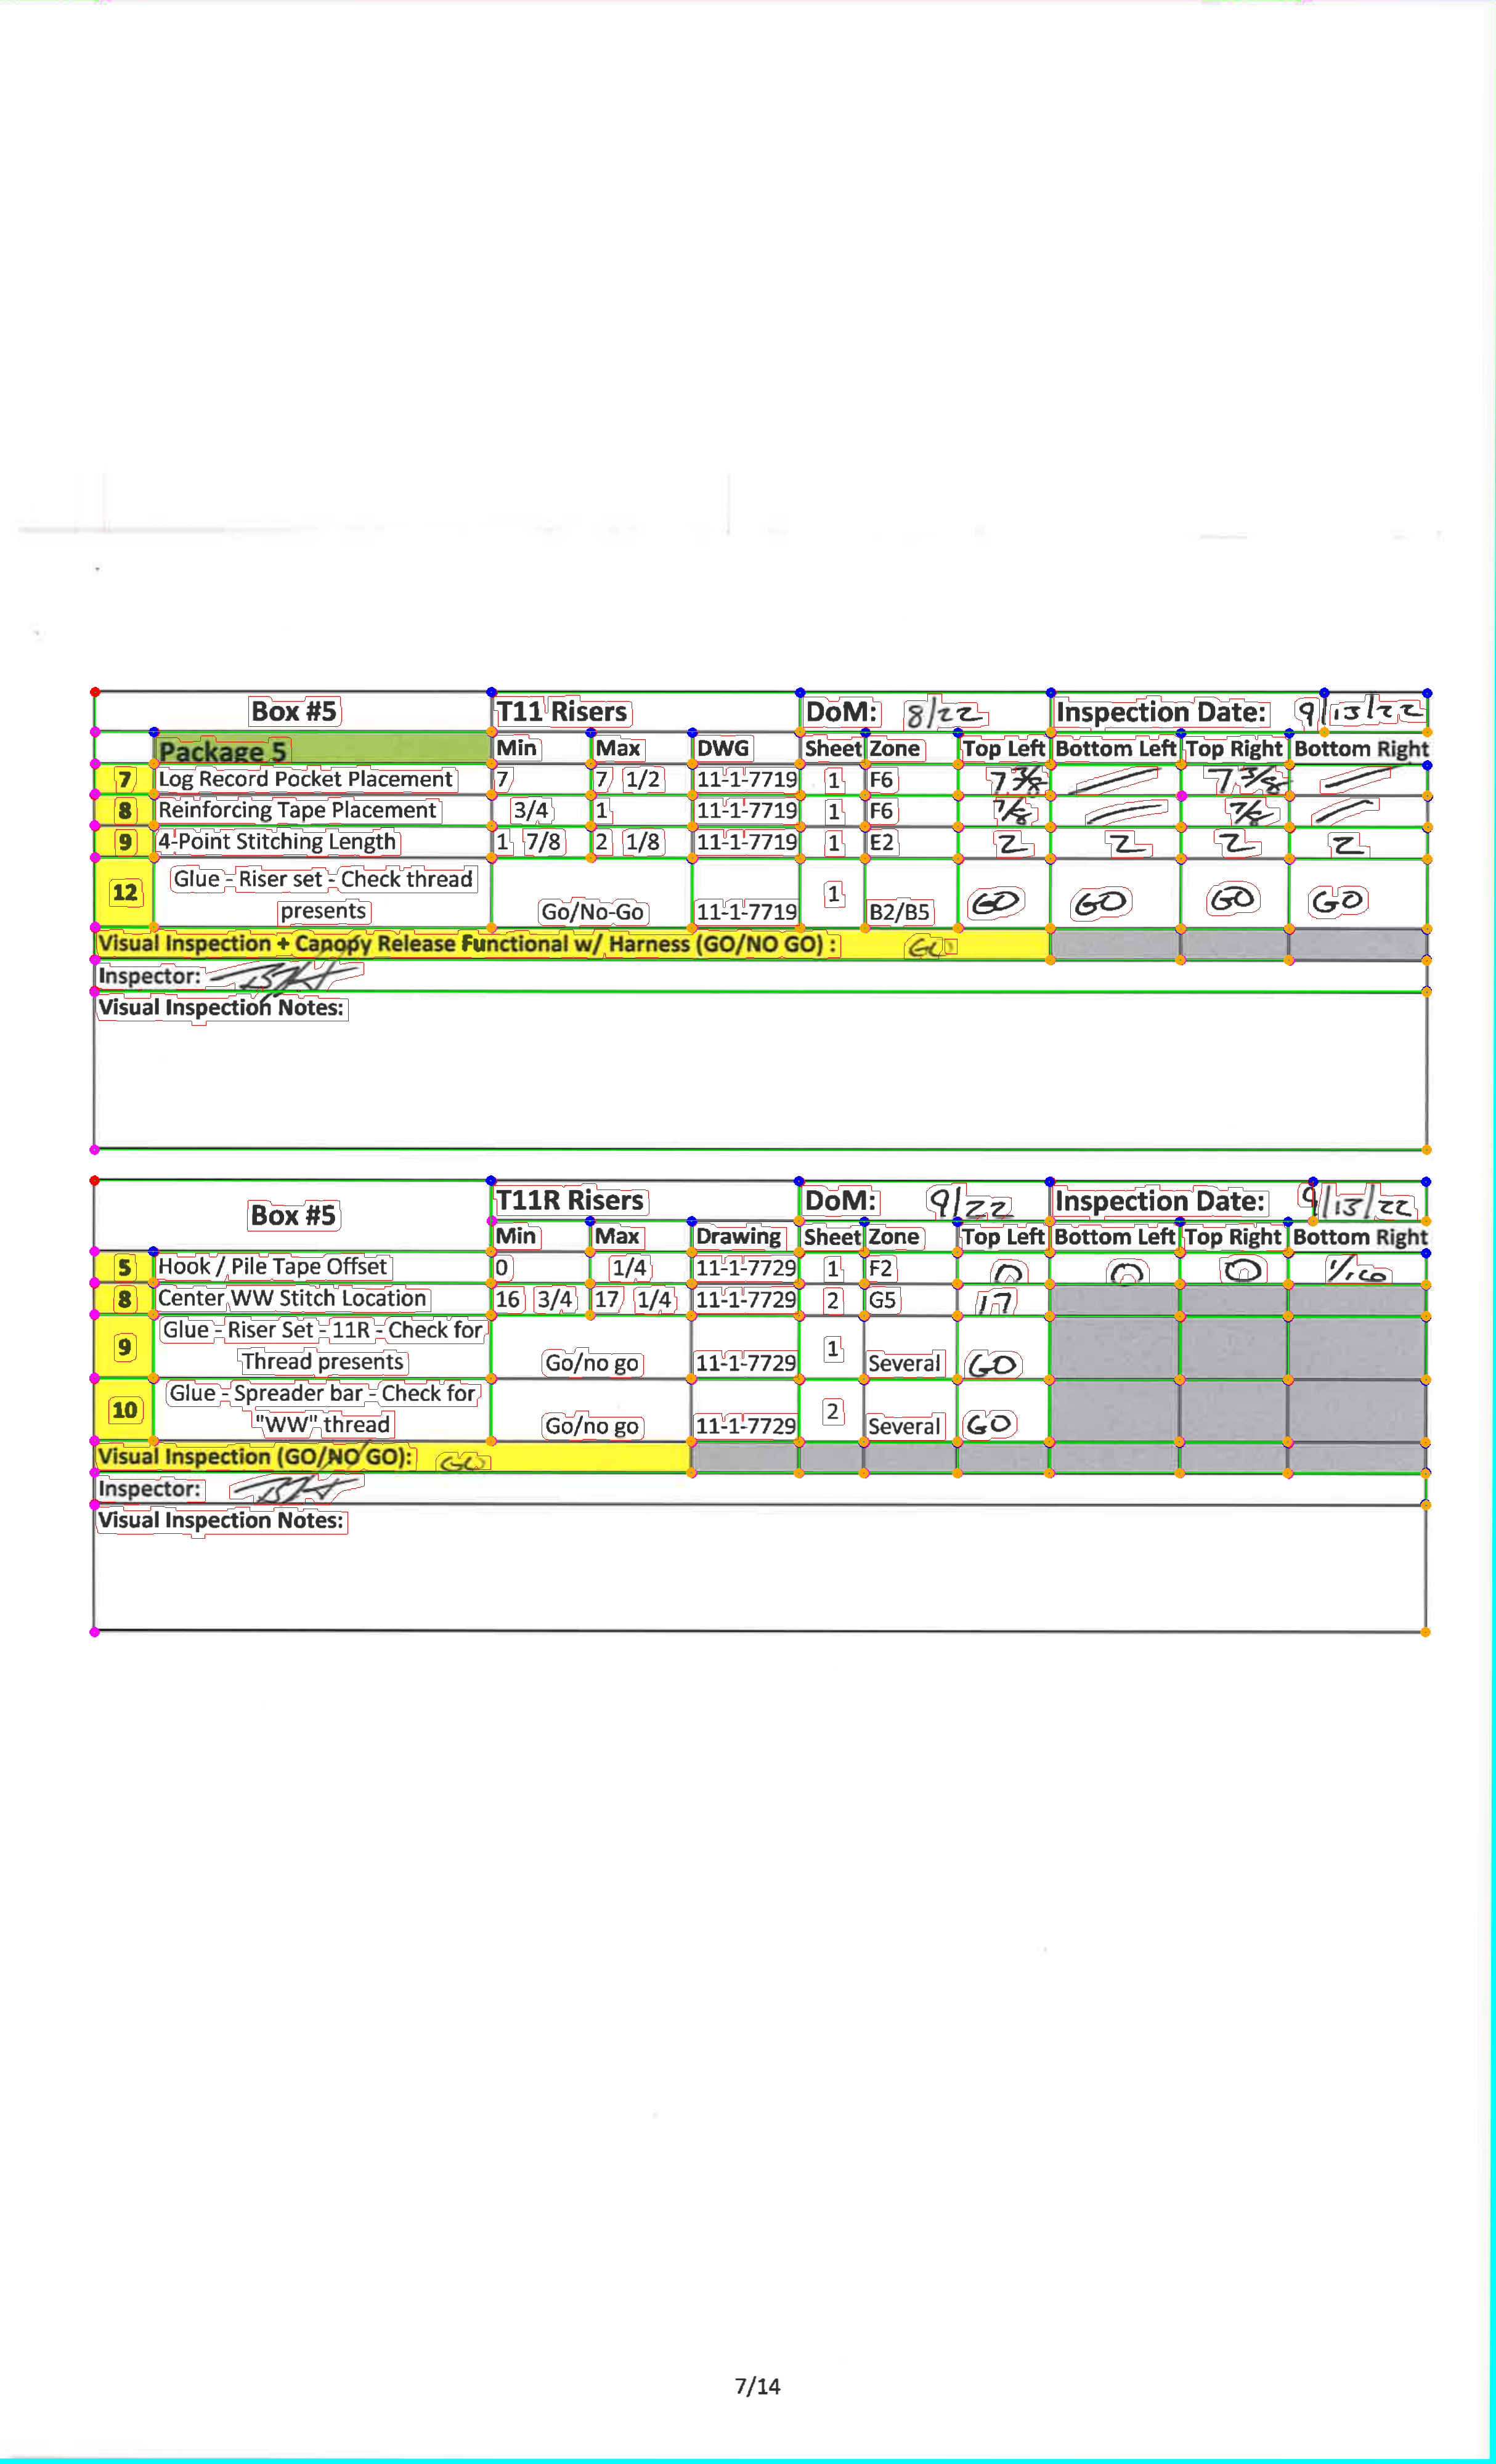 Box #5 T11 Risers DoM: 8/22 Inspection Date: 9/13/22
Package 5 Min Max DWG Sheet Zone Top Left Bottom Left Top Right Bottom Right
7 Log Record Pocket Placement 7 7 1/2 11-1-7719 1 F6 7 3/8 7 3/8
8 Reinforcing Tape Placement 3/4 1 11-1-7719 1 F6 7/8 7/8
9 4-Point Stitching Length 1 7/8 2 1/8 11-1-7719 1 E2 2 2 2 2
12 Glue - Riser set - Check thread
presents Go/No-Go 11-1-7719 1 B2/B5 GO GO GO GO
Visual Inspection + Canopy Release Functional w/ Harness (GO/NO GO) : GO
Inspector:
Visual Inspection Notes:
Box #5 T11R Risers DoM: 9/22 Inspection Date: 9/13/22
Min Max Drawing Sheet Zone Top Left Bottom Left Top Right Bottom Right
5 Hook / Pile Tape Offset 0 1/4 11-1-7729 1 F2 0 0 0 1/16
8 Center WW Stitch Location 16 3/4 17 1/4 11-1-7729 2 G5 17
9 Glue - Riser Set - 11R - Check for
Thread presents Go/no go 11-1-7729 1 Several GO
10 Glue - Spreader bar - Check for
"WW" thread Go/no go 11-1-7729 2 Several GO
Visual Inspection (GO/NO GO): GO
Inspector:
Visual Inspection Notes:
7/14